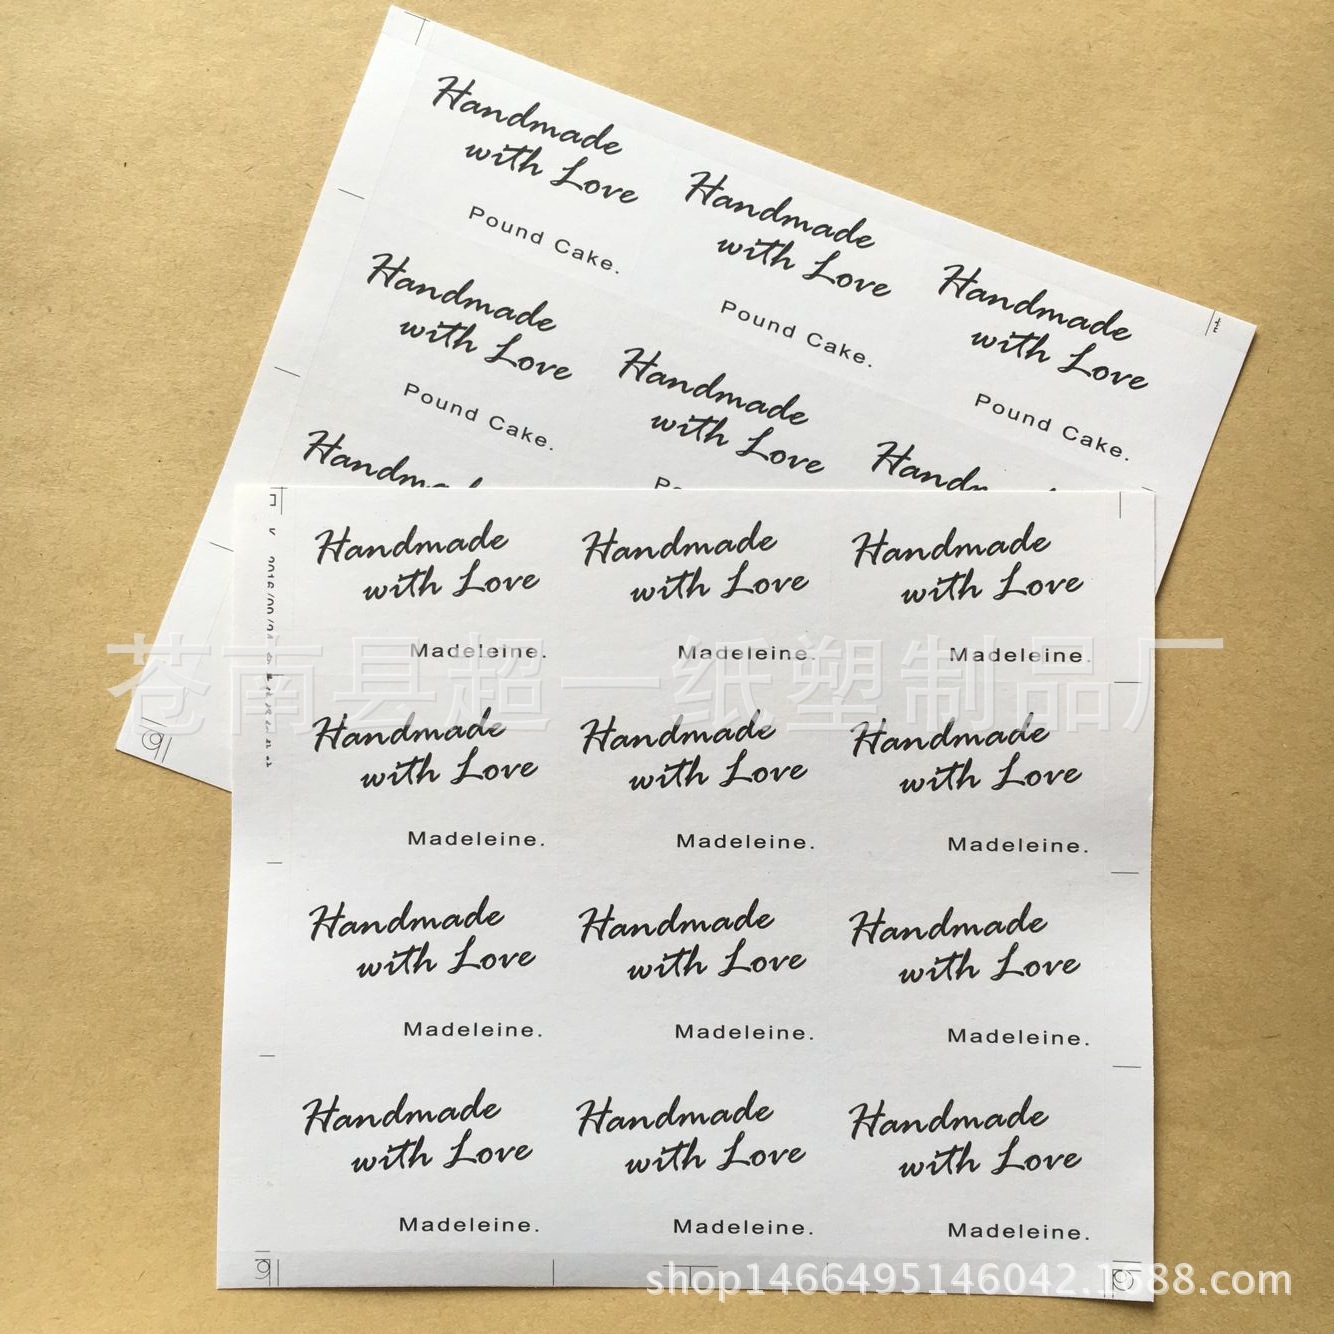 Handmade
with Love
Pound Cake.
Handmade
with Love
Pound Cake.
Handmade
with Love
Pound Cake.
Handmade
with Love
Pound Cake.
Handmade
with Love
Handmade
Handmade
with Love
Madeleine.
Handmade
with Love
Madeleine.
Handmade
with Love
Madeleine.
苍南县超一纸塑制品厂
Handmade
with Love
Madeleine.
Handmade
with Love
Madeleine.
Handmade
with Love
Madeleine.
Handmade
with Love
Madeleine.
Handmade
with Love
Madeleine.
Handmade
with Love
Madeleine.
Handmade
with Love
Madeleine.
Handmade
with Love
Madeleine.
Handmade
with Love
Madeleine.
shop1466495146042.1688.com